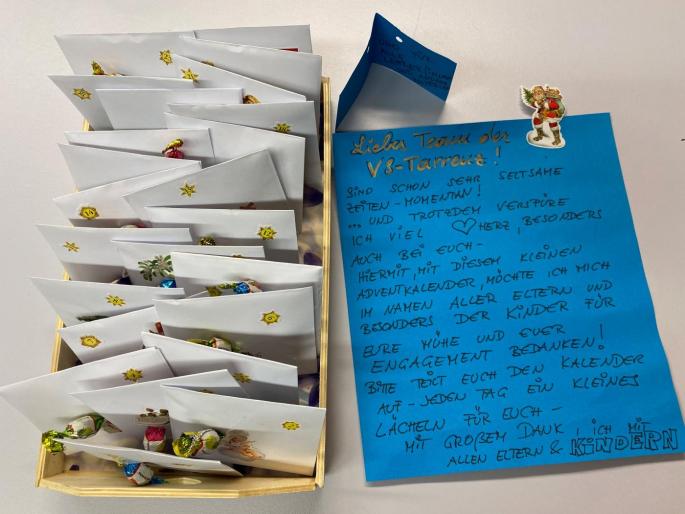 Liebes Team der
VS-Tarrenz!
SIND SCHON SEHR SELTSAME
ZEITEN-MOMENTAN!
...UND TROTZDEM VERSPÜRE
ICH VIEL ♡ HERZ, BESONDERS
AUCH BEI EUCH-
HIERMIT, MIT DIESEM KLEINEN
ADVENTKALENDER, MÖCHTE ICH MICH
IM NAMEN ALLER ELTERN UND
BESONDERS DER KINDER FÜR
EURE MÜHE UND EUER
ENGAGEMENT BEDANKEN!
BITTE TEILT EUCH DEN KALENDER
AUF-JEDEN TAG EIN KLEINES
LÄCHELN FÜR EUCH-
MIT GROßEM DANK, ICH MIT
ALLEN ELTERN & KINDERN